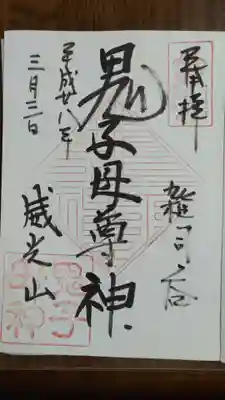 奉拝
雑司ヶ谷
鬼子母尊神
威光山
平成廿八年
三月三日